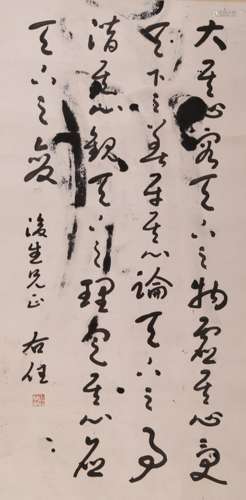 大其心容天下之物虛其心受
天下之善平其心論天下之事
潛其心觀天下之理定其心應
天下之變
浚生兄正 右任